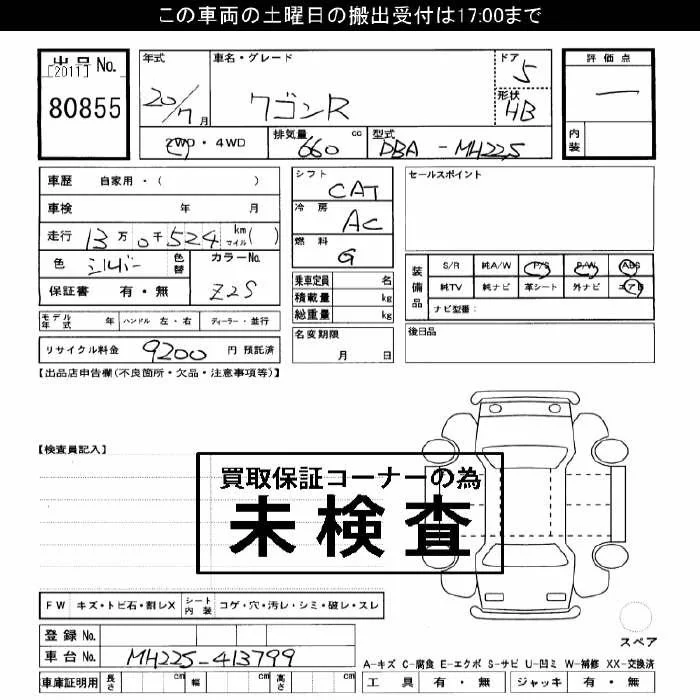 この車両の土曜日の搬出受付は17:00まで
出品 No.
[2011]
80855
年式
20/7 月
車名・グレード
ワゴンR
ドア
5
形状
HB
評価点
―
内装
2WD・4WD
排気量 660 cc
型式 DBA - MH22S
車歴 自家用・( )
車検 年 月
走行 13万0千524 km マイル ( )
色 シルバー 色替
カラーNo. Z2S
保証書 有・無
シフト CAT
冷房 AC
燃料 G
乗車定員 名
積載量 kg
総重量 kg
セールスポイント
装備品
S/R 純A/W P/S P/W ABS
純TV 純ナビ 革シート 外ナビ エアB
ナビ型番:
モデル年式 年 ハンドル 左・右 ディーラー・並行
名変期限 月 日
後日品
リサイクル料金 9200 円 預託済
【出品店申告欄(不良箇所・欠品・注意事項等)】
【検査員記入】
買取保証コーナーの為
未検査
FW キズ・トビ石・割レX シート内装 コゲ・穴・汚レ・シミ・破レ・スレ
スペア
登録 No.
車台 No. MH22S-413799
A-キズ C-腐食 E-エクボ S-サビ U-凹ミ W-補修 XX-交換済
車庫証明用 長さ cm 幅 cm 高さ cm
工具 有・無 ジャッキ 有・無